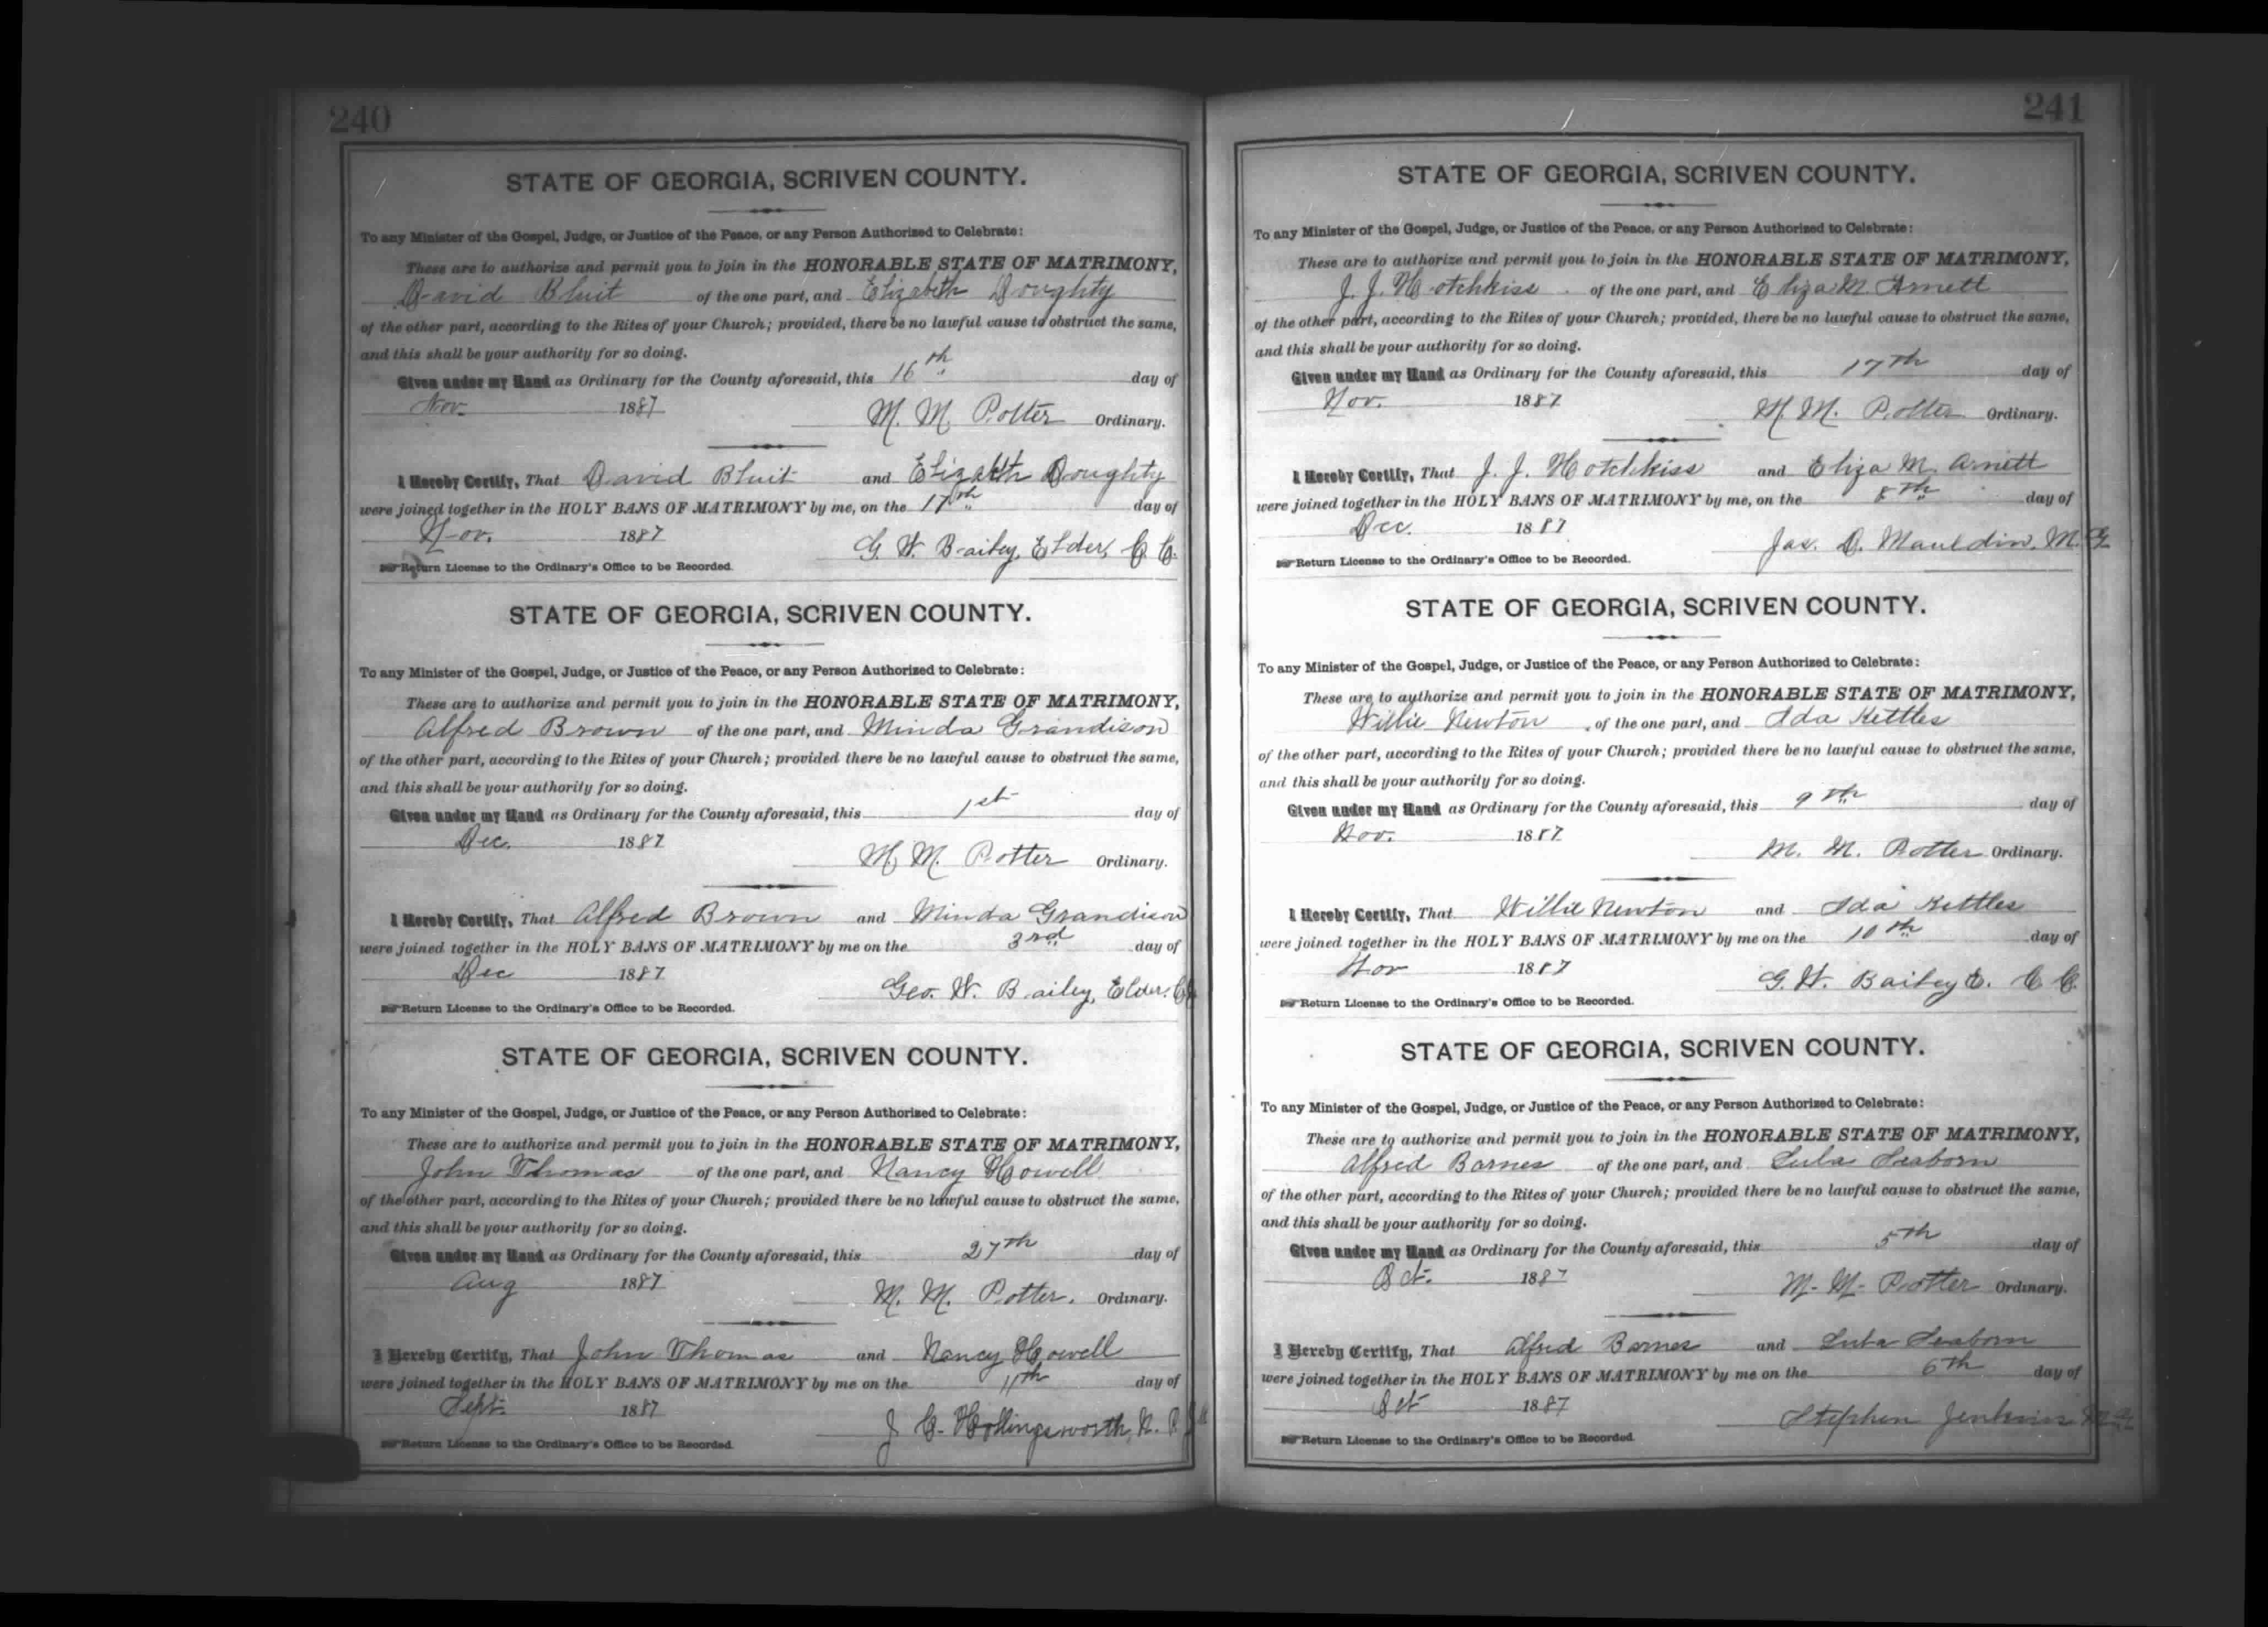 240
STATE OF GEORGIA, SCRIVEN COUNTY.
To any Minister of the Gospel, Judge, or Justice of the Peace, or any Person Authorized to Celebrate:
These are to authorize and permit you to join in the HONORABLE STATE OF MATRIMONY,
David Bluit of the one part, and Elizabeth Doughty
of the other part, according to the Rites of your Church; provided, there be no lawful cause to obstruct the same,
and this shall be your authority for so doing.
Given under my Hand as Ordinary for the County aforesaid, this 16th day of
Nov. 1887
M. M. Potter Ordinary.
I Hereby Certify, That David Bluit and Elizabeth Doughty
were joined together in the HOLY BANS OF MATRIMONY by me, on the 17th day of
Nov. 1887
G. W. Bailey, Elder, C. C.
Return License to the Ordinary's Office to be Recorded.
STATE OF GEORGIA, SCRIVEN COUNTY.
To any Minister of the Gospel, Judge, or Justice of the Peace, or any Person Authorized to Celebrate:
These are to authorize and permit you to join in the HONORABLE STATE OF MATRIMONY,
Alfred Brown of the one part, and Minda Grandison
of the other part, according to the Rites of your Church; provided there be no lawful cause to obstruct the same,
and this shall be your authority for so doing.
Given under my Hand as Ordinary for the County aforesaid, this 1st day of
Dec. 1887
M. M. Potter Ordinary.
I Hereby Certify, That Alfred Brown and Minda Grandison
were joined together in the HOLY BANS OF MATRIMONY by me on the 3rd day of
Dec 1887
Geo. W. Bailey, Elder.
Return License to the Ordinary's Office to be Recorded.
STATE OF GEORGIA, SCRIVEN COUNTY.
To any Minister of the Gospel, Judge, or Justice of the Peace, or any Person Authorized to Celebrate:
These are to authorize and permit you to join in the HONORABLE STATE OF MATRIMONY,
John Thomas of the one part, and Nancy Howell
of the other part, according to the Rites of your Church; provided there be no lawful cause to obstruct the same,
and this shall be your authority for so doing.
Given under my Hand as Ordinary for the County aforesaid, this 27th day of
Aug 1887
M. M. Potter. Ordinary.
I Hereby Certify, That John Thomas and Nancy Howell
were joined together in the HOLY BANS OF MATRIMONY by me on the 11th day of
Sept. 1887
J. C. Hollingsworth, N. P.
Return License to the Ordinary's Office to be Recorded.
241
STATE OF GEORGIA, SCRIVEN COUNTY.
To any Minister of the Gospel, Judge, or Justice of the Peace, or any Person Authorized to Celebrate:
These are to authorize and permit you to join in the HONORABLE STATE OF MATRIMONY,
J. J. Hotchkiss of the one part, and Eliza M. Arnett
of the other part, according to the Rites of your Church; provided, there be no lawful cause to obstruct the same,
and this shall be your authority for so doing.
Given under my Hand as Ordinary for the County aforesaid, this 17th day of
Nov. 1887
M. M. Potter Ordinary.
I Hereby Certify, That J. J. Hotchkiss and Eliza M. Arnett
were joined together in the HOLY BANS OF MATRIMONY by me, on the 8th day of
Dec. 1887
Jas. D. Mauldin, M. G.
Return License to the Ordinary's Office to be Recorded.
STATE OF GEORGIA, SCRIVEN COUNTY.
To any Minister of the Gospel, Judge, or Justice of the Peace, or any Person Authorized to Celebrate:
These are to authorize and permit you to join in the HONORABLE STATE OF MATRIMONY,
Willie Newton of the one part, and Ida Kettles
of the other part, according to the Rites of your Church; provided there be no lawful cause to obstruct the same,
and this shall be your authority for so doing.
Given under my Hand as Ordinary for the County aforesaid, this 9th day of
Nov. 1887
M. M. Potter Ordinary.
I Hereby Certify, That Willie Newton and Ida Kettles
were joined together in the HOLY BANS OF MATRIMONY by me on the 10th day of
Nov 1887
G. W. Bailey E. C. C.
Return License to the Ordinary's Office to be Recorded.
STATE OF GEORGIA, SCRIVEN COUNTY.
To any Minister of the Gospel, Judge, or Justice of the Peace, or any Person Authorized to Celebrate:
These are to authorize and permit you to join in the HONORABLE STATE OF MATRIMONY,
Alfred Barnes of the one part, and Lula Seaborn
of the other part, according to the Rites of your Church; provided there be no lawful cause to obstruct the same,
and this shall be your authority for so doing.
Given under my Hand as Ordinary for the County aforesaid, this 5th day of
Oct. 1887
M. M. Potter Ordinary.
I Hereby Certify, That Alfred Barnes and Lula Seaborn
were joined together in the HOLY BANS OF MATRIMONY by me on the 6th day of
Oct 1887
Stephen Jenkins M. G.
Return License to the Ordinary's Office to be Recorded.